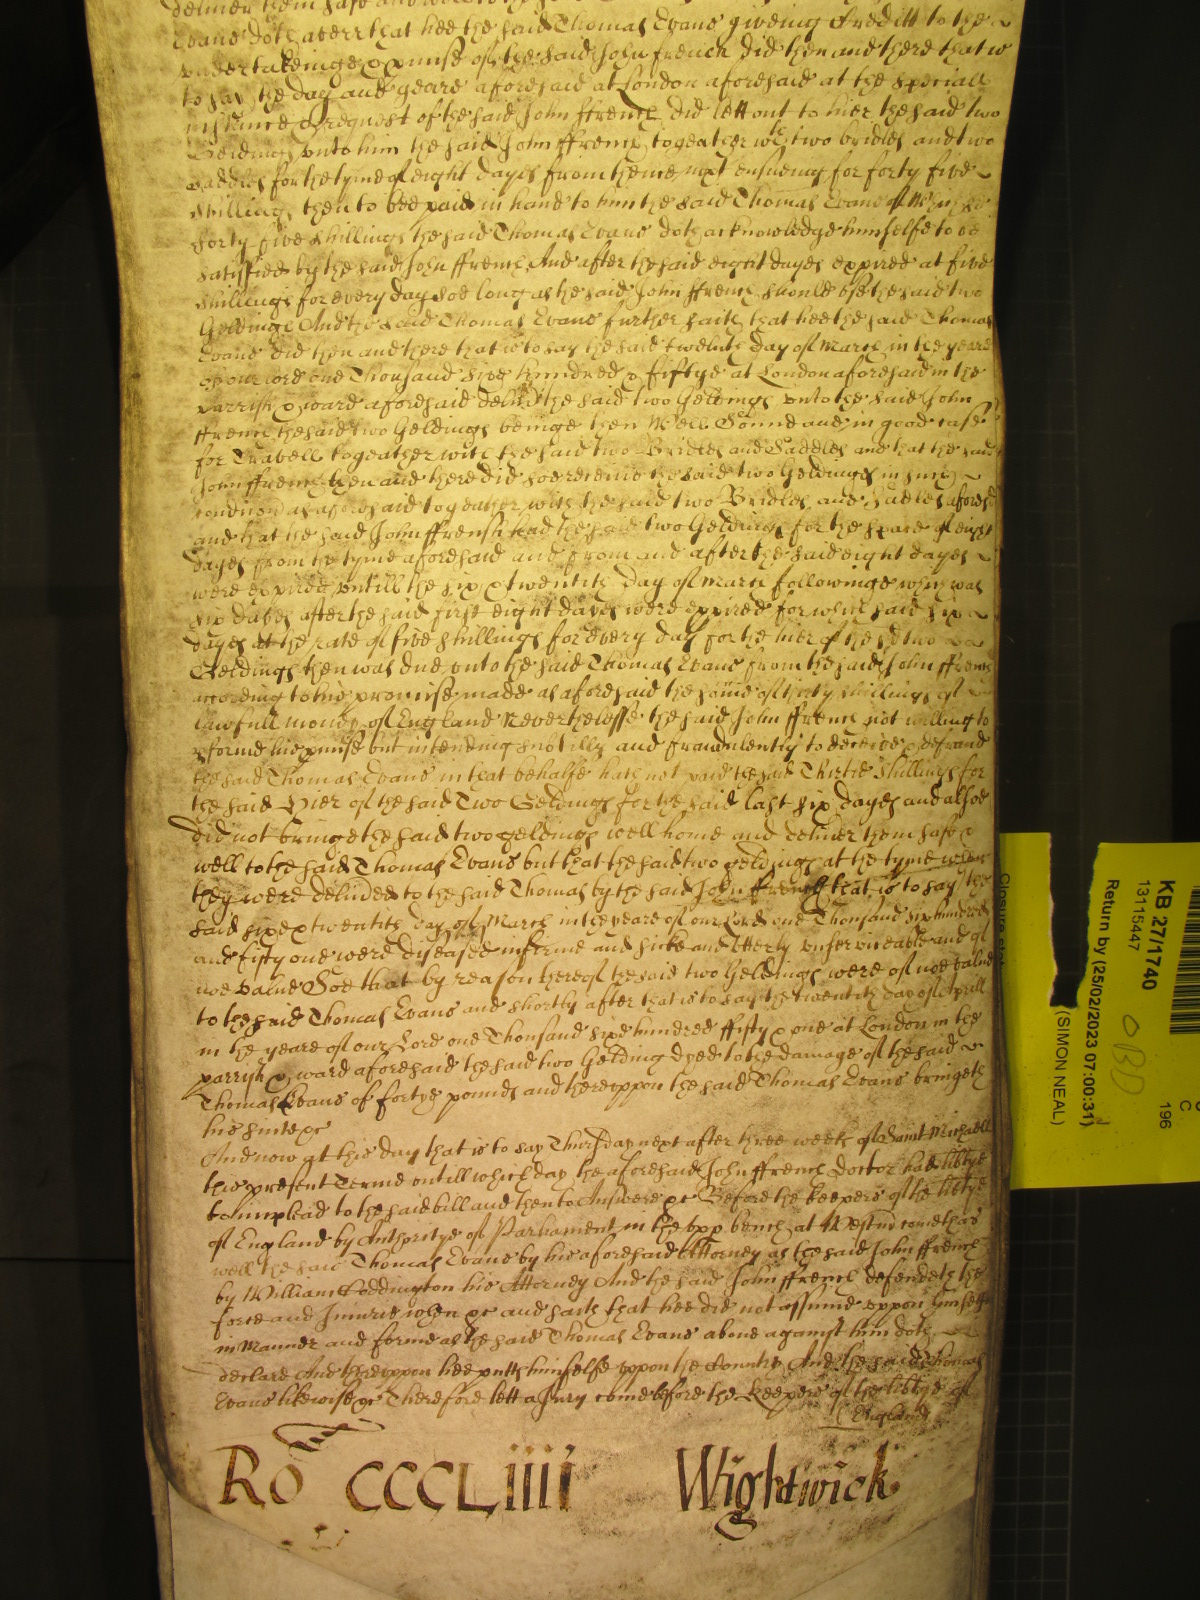 deliver them safe and well to the said Thomas
Evans doth averr that hee the said Thomas Evans giveing Creditt to the
undertakeinge & pmise of the said John ffrench did then and there that is
to say the day and yeare aforesaid at London aforesaid at the speciall
instance & request of the said John ffrench did lett out to hier the said two
Geldings unto him the said John ffrench togeather wth two bridles and two
saddles for the tyme of eight dayes from thence next ensueing for forty five
shillings then to bee paid in hand to him the said Thomas Evans of which
forty five shillings the said Thomas Evans doth acknowledge himselfe to be
satisfied by the said John ffrench And after the said eight dayes expired at five
shillings for every day soe long as the said John ffrench should use the said two
Geldings And the said Thomas Evans further saith that hee the said Thomas
Evans did then and there that is to say the said twelveth day of March in the yeare
of our Lord one Thousand Sixe hundred & fiftye at London aforesaid in the
parrish & ward aforesaid delivd the said two Geldings unto the said John
ffrench the said two Geldings beinge then Well Sound and in good case
for Travell togeather with the said two Bridles and Saddles and that the said
John ffrench then and there did soe receive the said two Geldings in such
condicion as aforesaid togeather with the said two Bridles and Sadles aforesd
and that the said John ffrench had the said two Geldings for the space of eight
dayes from the tyme aforesaid and from and after the said eight dayes
were expired untill the six & twentith day of March followinge which was
six dayes after the said first eight dayes were expired for which said six
dayes at the rate of five shillings for every day for the hier of the sd two
Geldings then was due unto the said Thomas Evans from the said John ffrench
according to his promise made as aforesaid the sume of thirty shillings of
lawfull money of England Neverthelesse the said John ffrench not willing to
pforme his pmise but intending subtilly and fraudulently to deceive & defraud
the said Thomas Evans in that behalfe hath not paid the said Thirtie Shillings for
the said Hier of the said Two Geldings for the said last six dayes and alsoe
did not bringe the said two geldings well home and deliver them safe &
well to the said Thomas Evans but that the said two geldings at the tyme when
they were delivered to the said Thomas by the said John ffrench that is to say the
said sixe & twentith day of March in the yeare of our Lord one Thousand six hundred
and fifty one were diseased infirme and sicke and utterly unserviceable and of
noe value Soe that by reason thereof the said two Geldings were of noe value
to the said Thomas Evans and shortly after that is to say the twentith day of Aprill
in the yeare of our Lord one Thousand sixe hundred ffifty & one at London in the
parrish & ward aforesaid the said two Gelding dyed to the damage of the said
Thomas Evans of fortye pounds and thereuppon the said Thomas Evans bringeth
his suite &c
And now at this day that is to say Thursday next after three weeks of Saint Michaell
this present Terme untill which day the aforesaid John ffrench Doctor had libtye
to implead to the said bill and then to Answere &c Before the keepers of the libtye
of England by Authoritye of Parliament in the upp bench at Westm come th as
well the said Thomas Evans by his aforesaid Attorney as the said John ffrench
by William Coddington his Attorney And the said John ffrench defendeth the
force and Iniurie when &c and saith that hee did not assume uppon himself
in Manner and forme as the said Thomas Evans above against him doth
declare And thereuppon hee putts himselfe uppon the Country And the said Thomas
Evans likewise &c Therefore lett a Jury come before the Keepers of the libtye of
England
Ro CCCLiiii Wightwick
KB 27/1740
13115447
Return by (25/02/2023 07:00:31)
(SIMON NEAL)
196
C
OBD